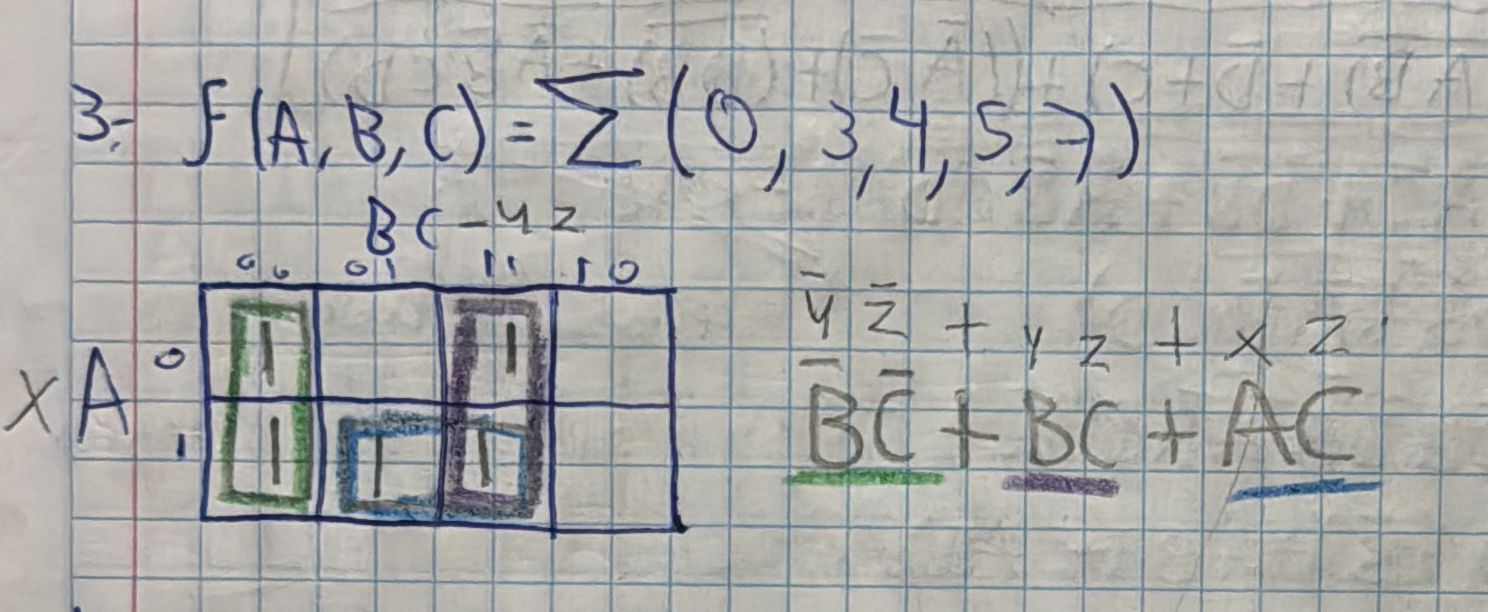 3.- f(A, B, C) = Σ(0, 3, 4, 5, 7)
BC - yz
00 01 11 10
x A 0 1 1
1 1 1 1
y̅ z̅ + y z + x z
B̅ C̅ + BC + AC